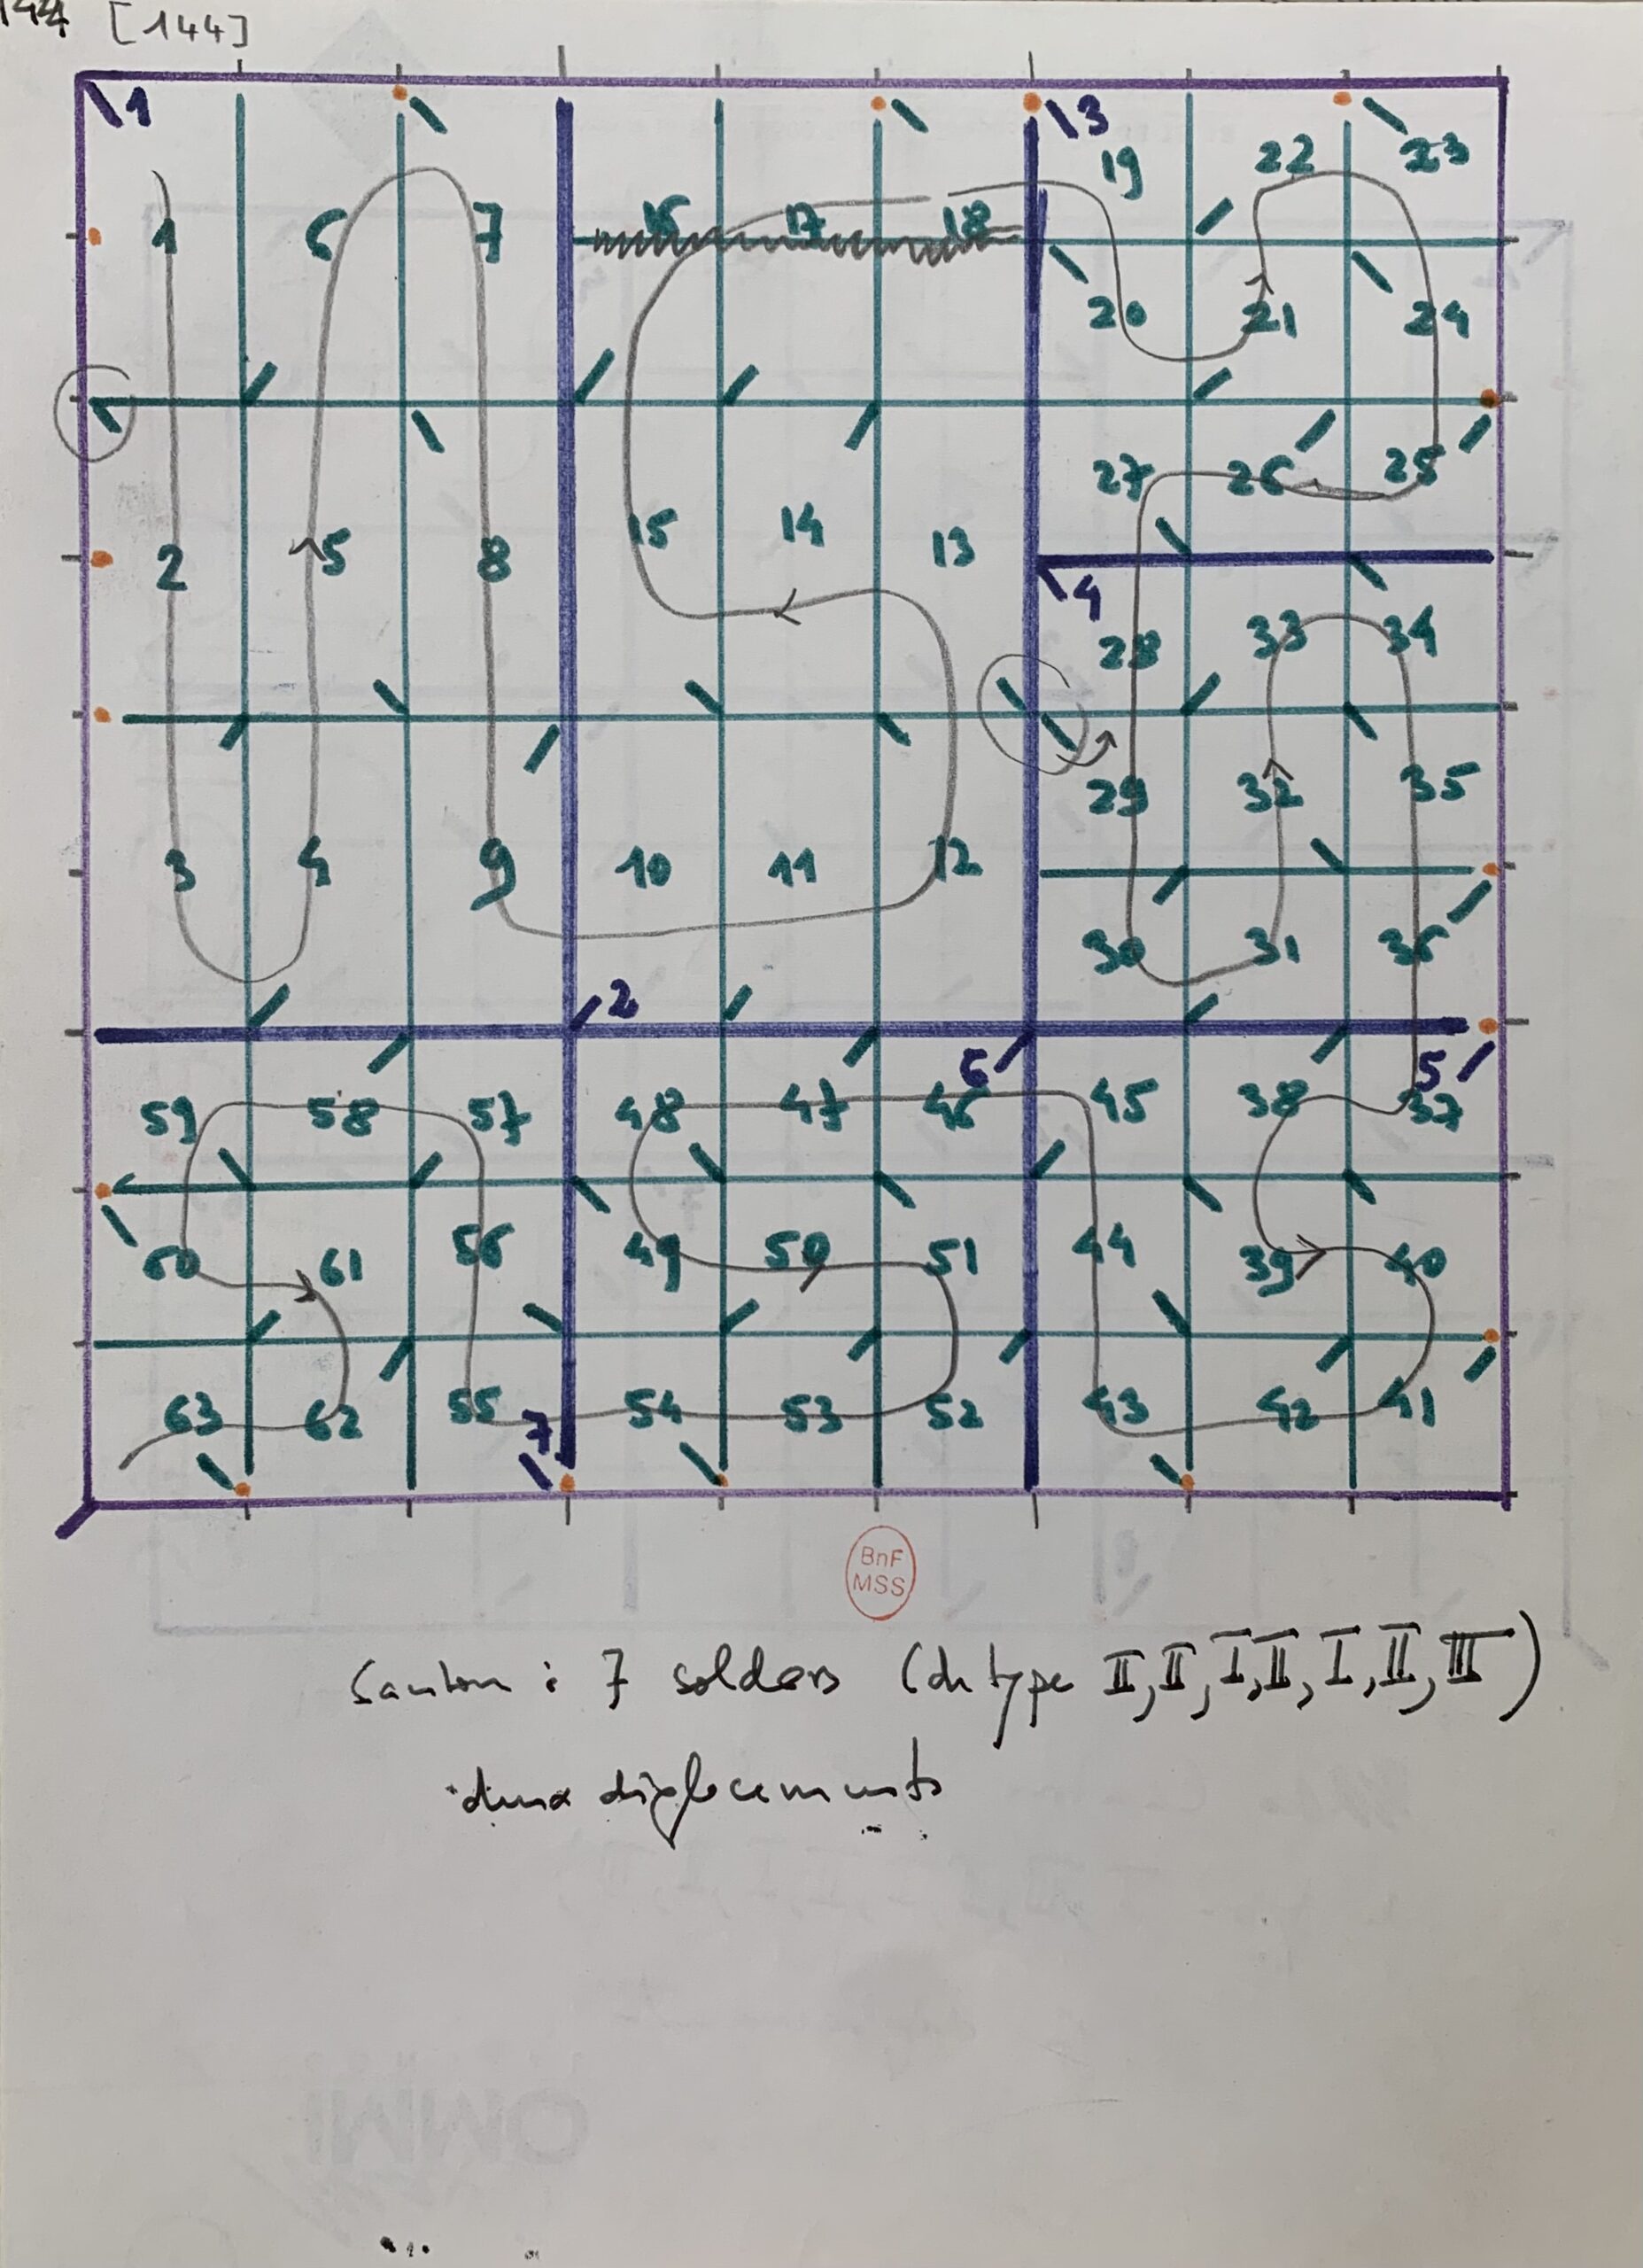 [144]
1 3
19 22 23
1 6 7 16 17 18
20 21 24
27 26 25
2 5 8 15 14 13
4
28 33 34
29 32 35
3 4 9 10 11 12
30 31 36
2
6 5
59 58 57 48 47 46 45 38 37
60 61 56 49 50 51 44 39 40
63 62 55 54 53 52 43 42 41
7
BnF
MSS
: 7 (de type II, II, I, II, I, II, III)
deux déplacements